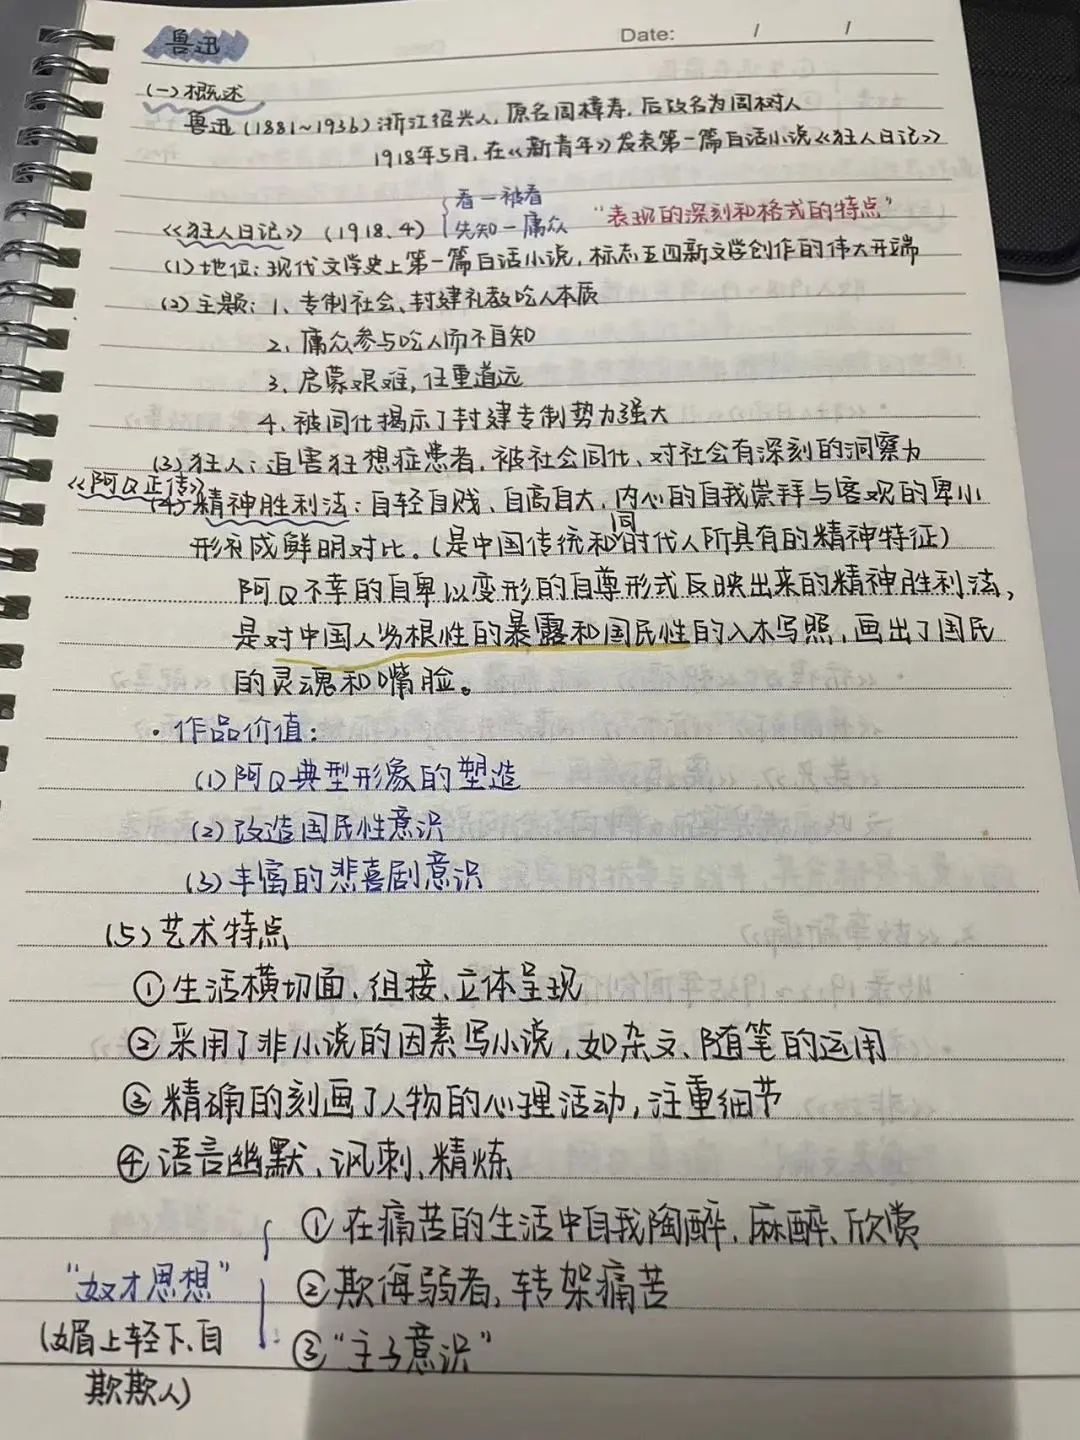 Date: / /
鲁迅
(一)概述
鲁迅(1881~1936):浙江绍兴人,原名周樟寿,后改名为周树人
1918年5月,在《新青年》发表第一篇白话小说《狂人日记》
看一被看
《狂人日记》(1918.4) 先知一庸众 "表现的深刻和格式的特点"
(1)地位:现代文学史上第一篇白话小说,标志五四新文学创作的伟大开端
(2)主题:1、专制社会、封建礼教吃人本质
2、庸众参与吃人而不自知
3、启蒙艰难,任重道远
4、被同化揭示了封建专制势力强大
(3)狂人:迫害狂想症患者,被社会同化、对社会有深刻的洞察力
《阿Q正传》
(4)精神胜利法:自轻自贱、自高自大,内心的自我崇拜与客观的卑小
形象成鲜明对比。(是中国传统和同时代人所具有的精神特征)
阿Q不幸的自卑以变形的自尊形式反映出来的精神胜利法,
是对中国人劣根性的暴露和国民性的入木写照,画出了国民
的灵魂和嘴脸。
·作品价值:
(1)阿Q典型形象的塑造
(2)改造国民性意识
(3)丰富的悲喜剧意识
(5)艺术特点
①生活横切面、组接、立体呈现
②采用了非小说的因素写小说,如杂文、随笔的运用
③精确的刻画了人物的心理活动,注重细节
④语言幽默、讽刺、精炼
①在痛苦的生活中自我陶醉、麻醉、欣赏
"奴才思想" ②欺侮弱者,转架痛苦
(媚上轻下、自 ③"主子意识"
欺欺人)